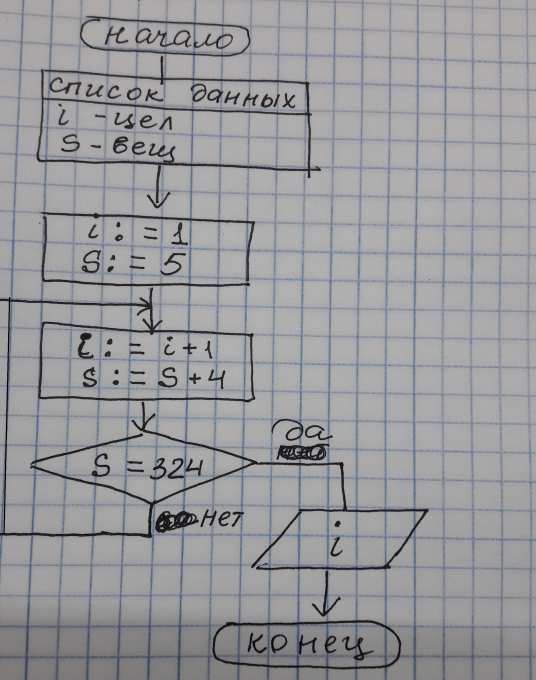 начало
список данных
i - цел
S - вещ
i := 1
S := 5
i := i + 1
S := S + 4
S = 324
да
нет
i
конец